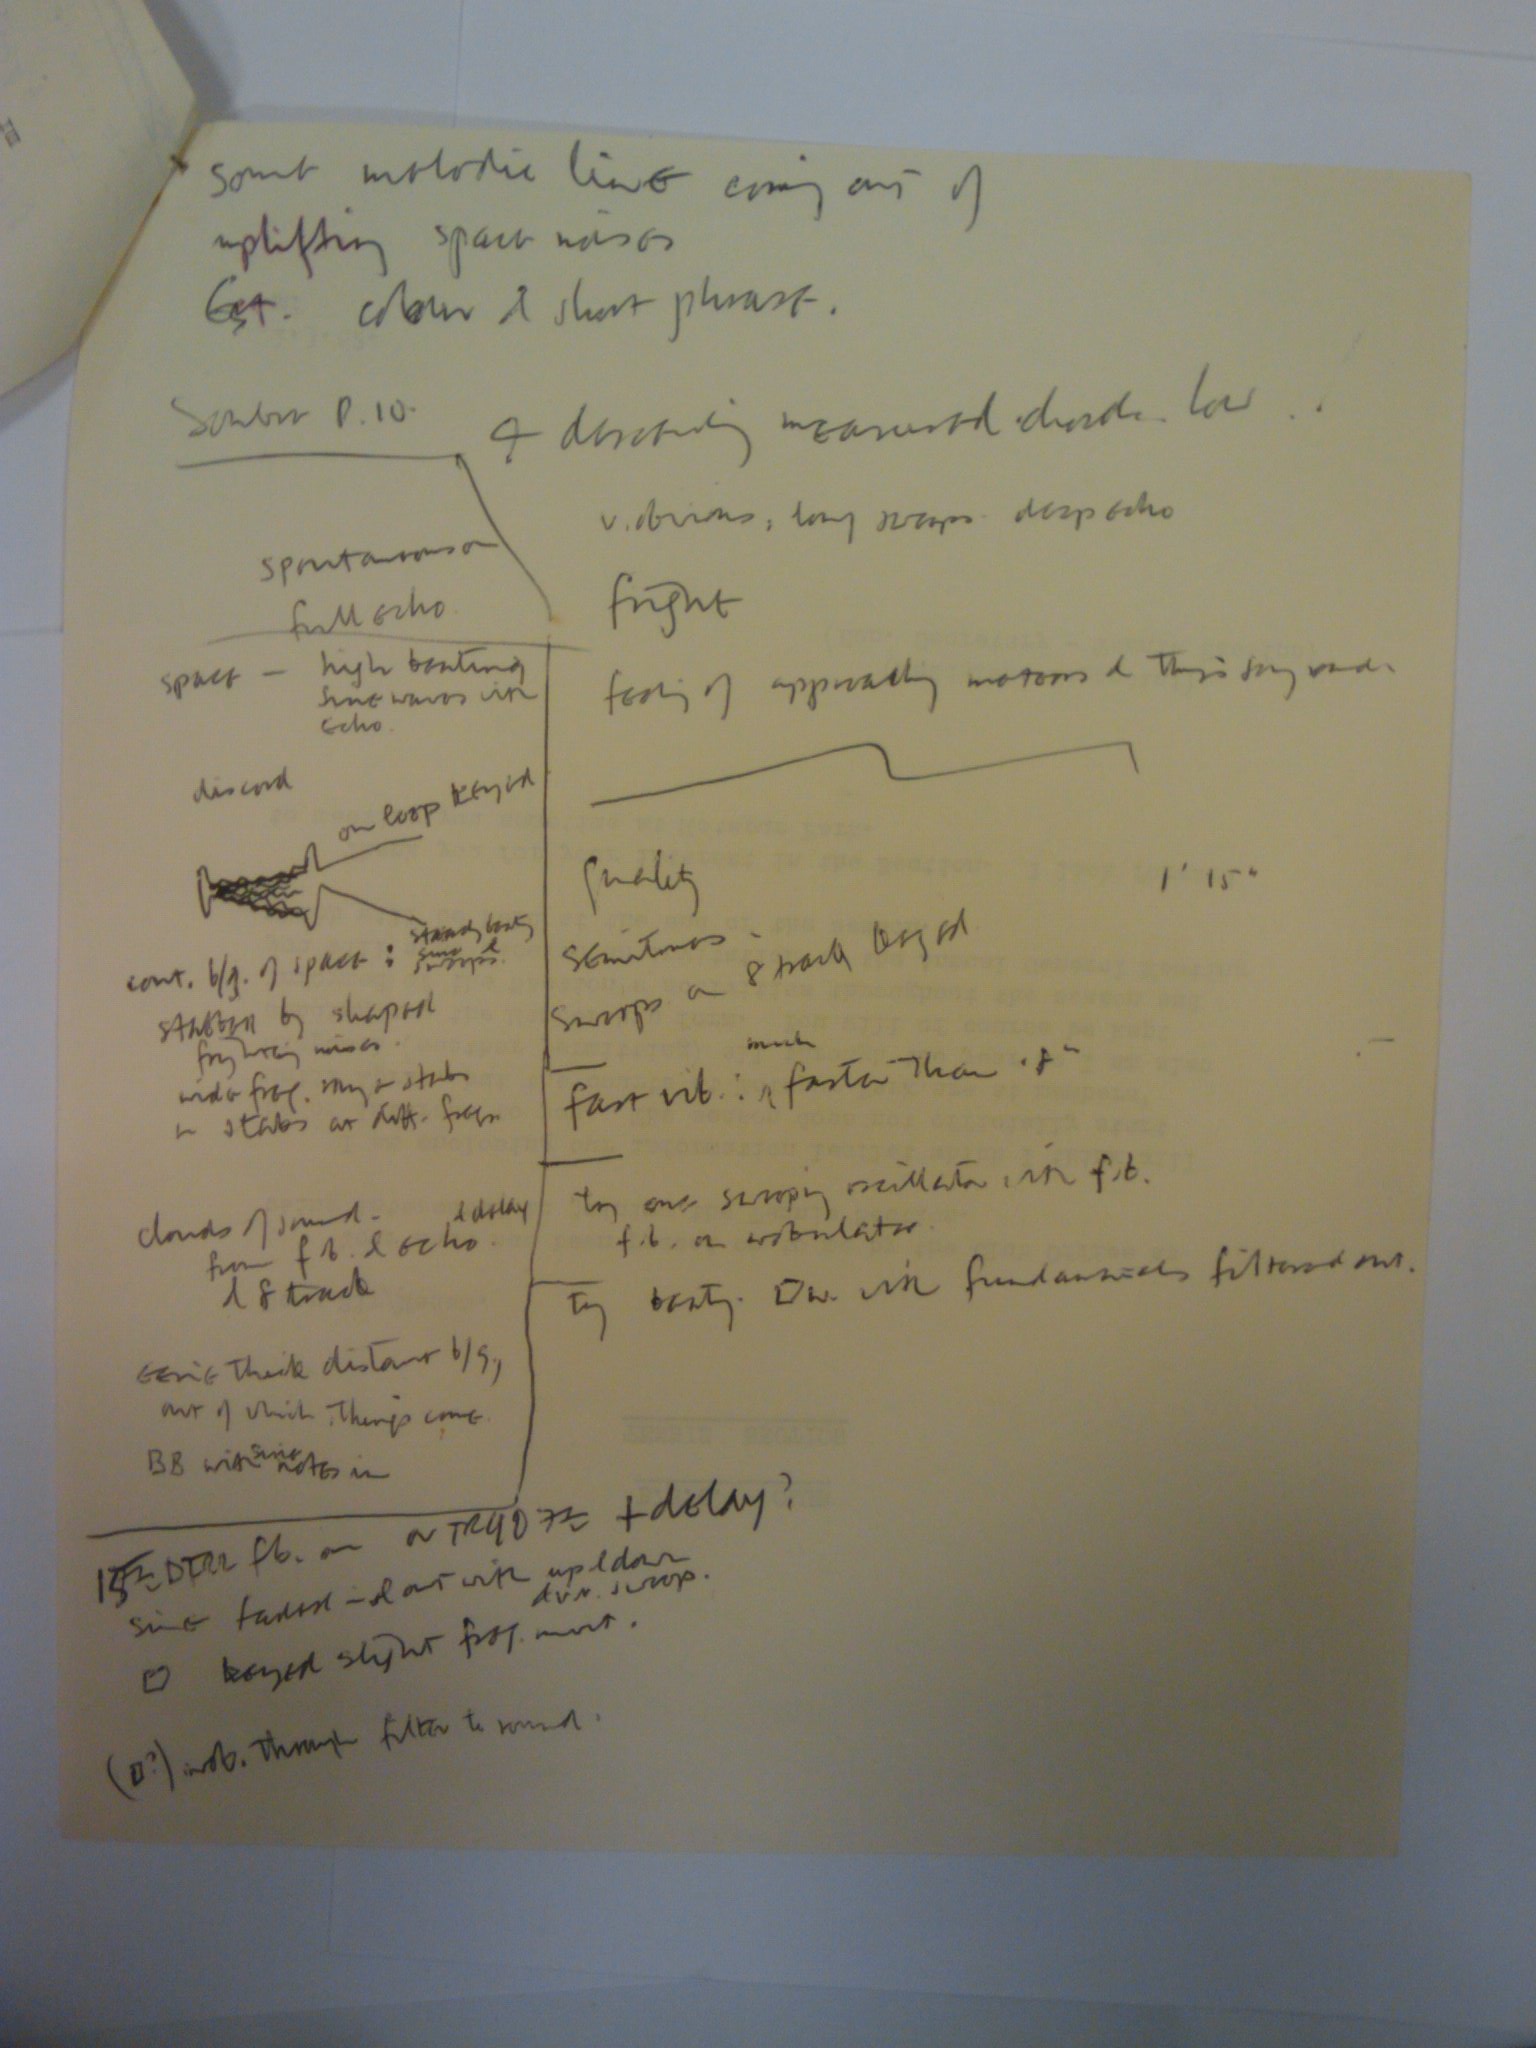 some melodic line coming out of
uplifting space noises
Est. colour & short phrase.
P. 10.
4 descending measured chords. low ..
v. obvious, long sweeps. deep echo
spontaneous
full echo.
fright
feeling of approaching meteors & things
space – high beating
sine waves with
echo.
discord
on loop keyed
steady beaty
sine &
sweeps.
cont. b/g. of space :
by shaped
frightening noises.
wide freq. range stabs
or stabs at diff. freqs
Quality
1' 15"
semitones
sweeps on 8 track keyed
much
fast vib. : faster than .8"
clouds of sound.
& delay
from f.b. & echo.
& 8 track
try one sweeping oscillator with f.b.
f.b. on wobulator.
try beaty. □w. with fundamentals filtered out.
eerie thick distant b/g,
out of which things come.
BB with sine notes in
15 fb. on or TR90 7½ + delay?
sine faded in & out with up & down
sweep.
□ keyed slight freq. mvt.
(□?) wob. through filter to sound.